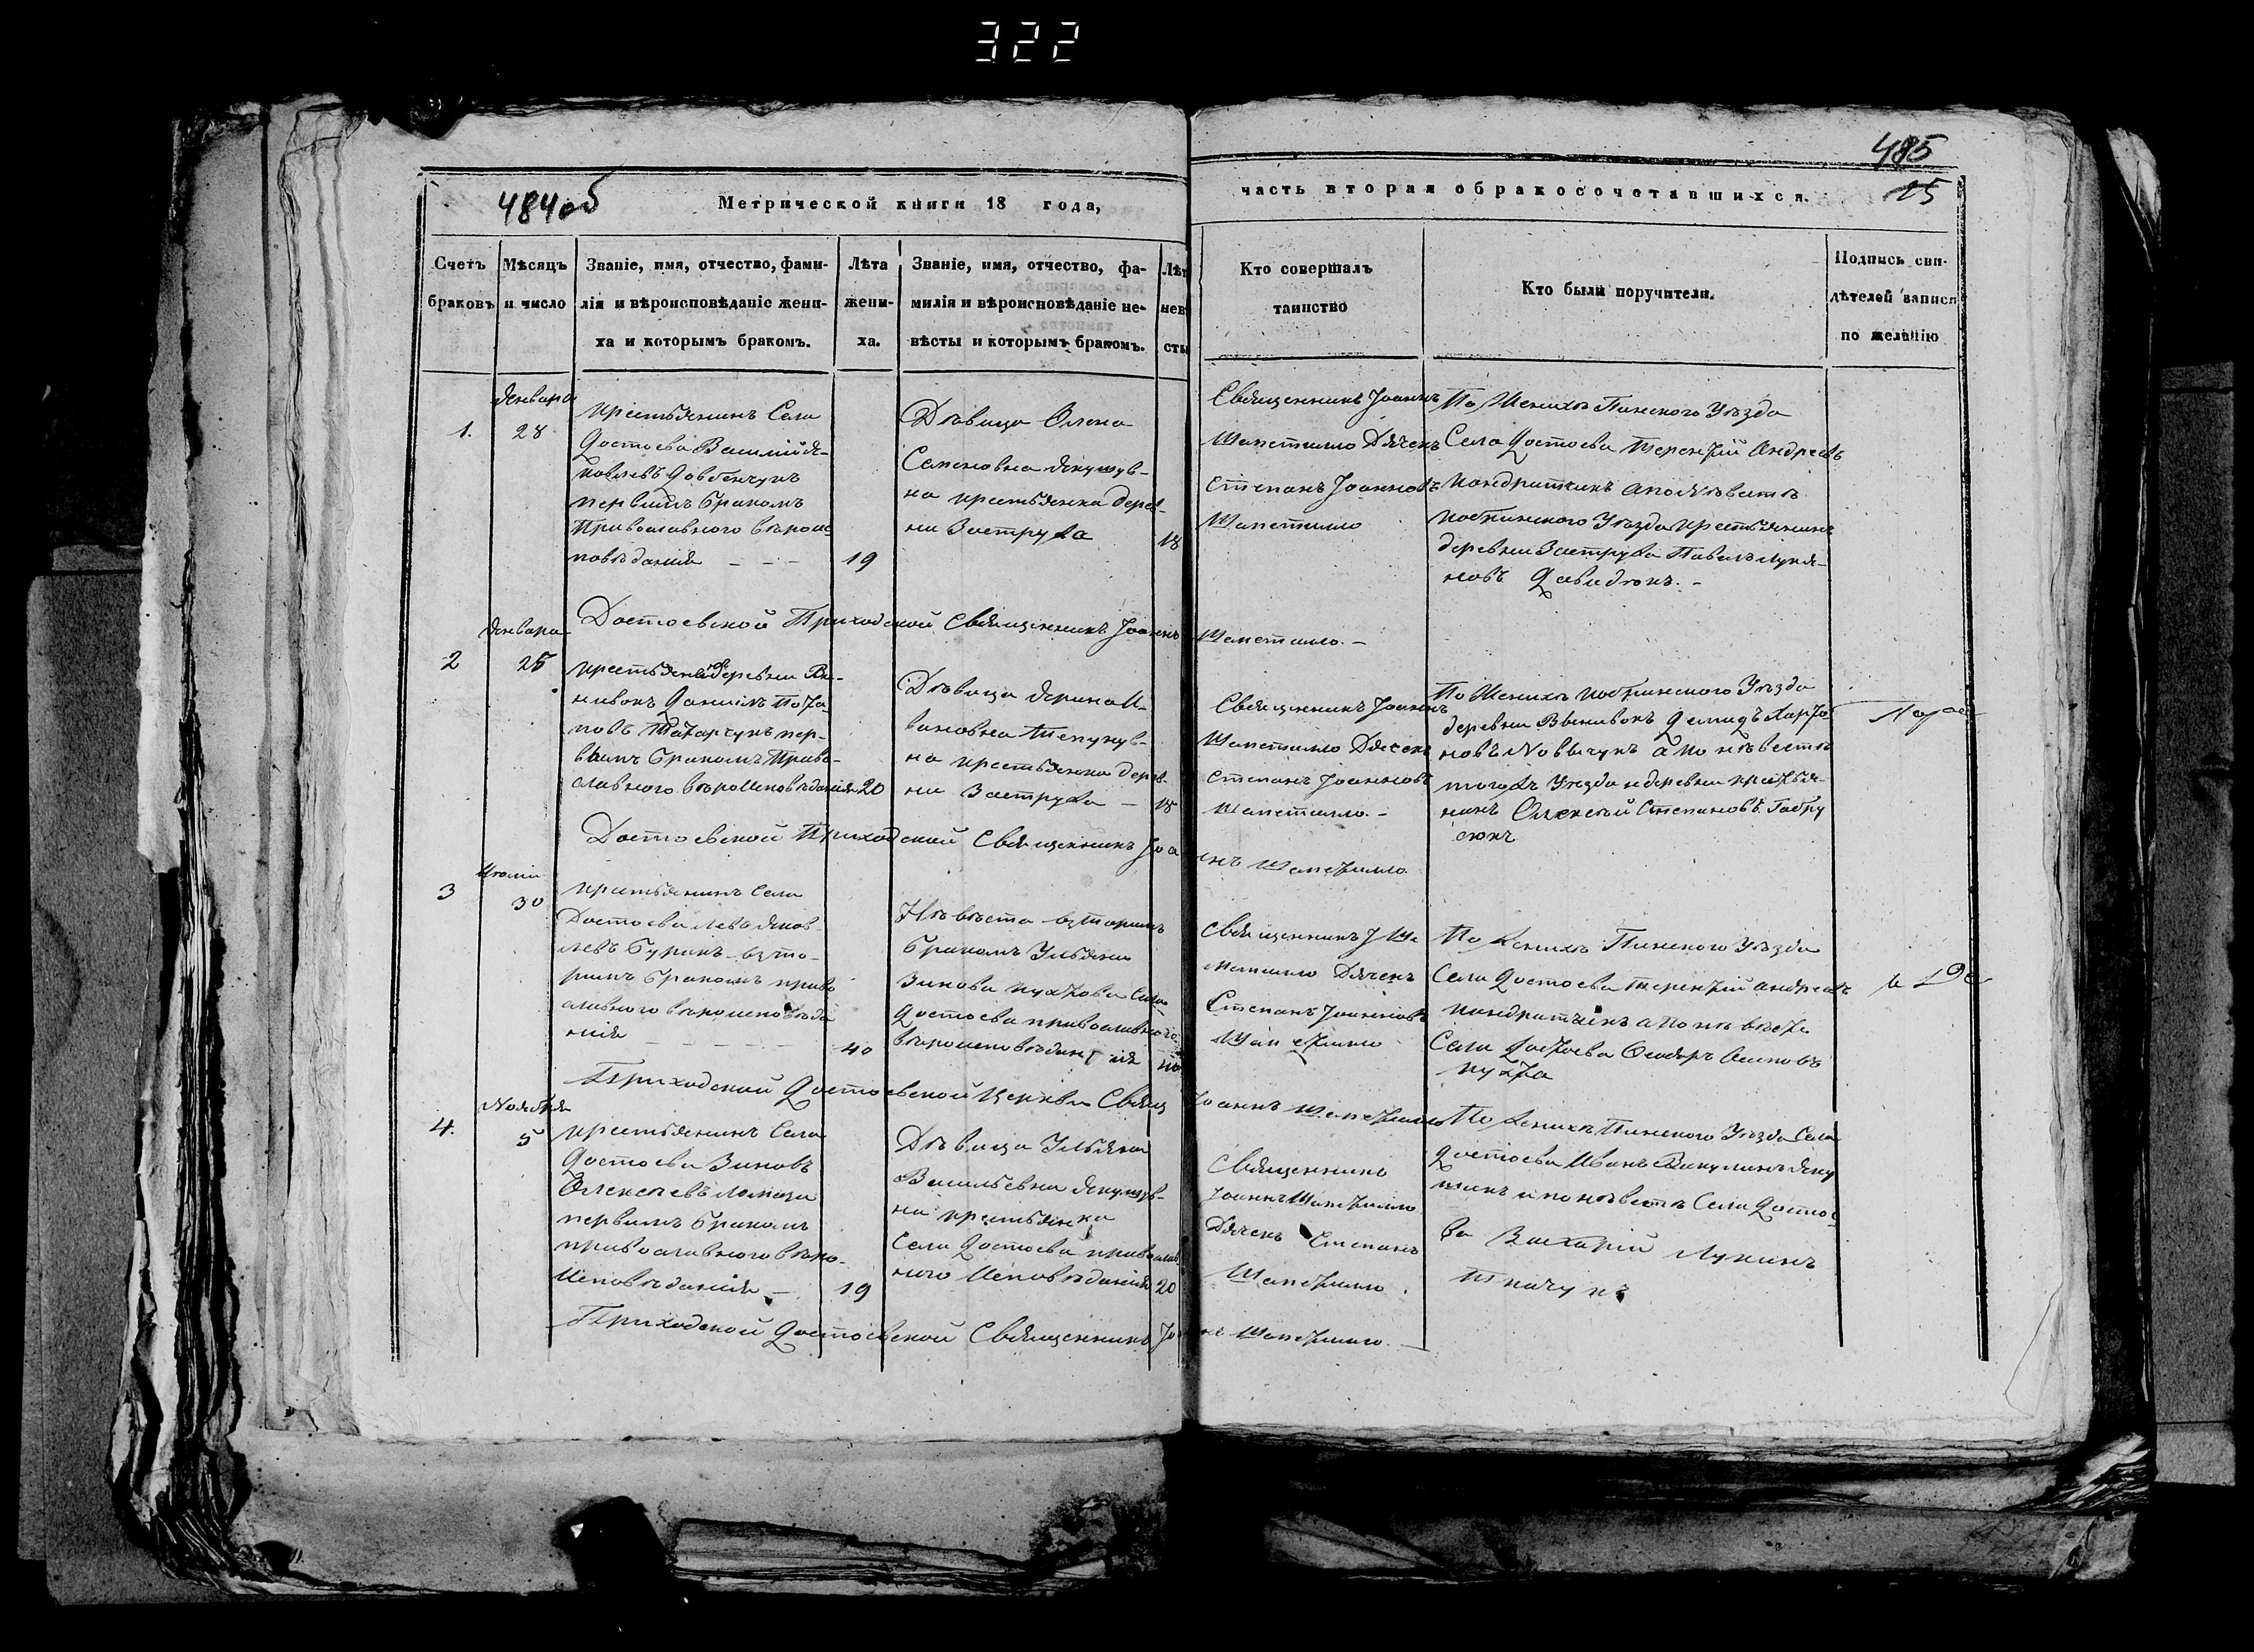 322
484об
Метрической книги 18 года,
Счетъ браковъ
Мѣсяцъ и число
Званіе, имя, отчество, фами-
лія и вѣроисповѣданіе жени-
ха и которымъ бракомъ.
Лѣта
жени-
ха.
Званіе, имя, отчество, фа-
милія и вѣроисповѣданіе не-
вѣсты и которымъ бракомъ.
Лѣт
нев
сты
485
25
часть вторая обракосочетавшихся.
Кто совершалъ
таинство
Кто были поручители.
Подпись сви-
дѣтелей записи
по желанію
1.
Января
28
крестьянинъ Села
Достоева Василій Я-
ковлевъ Довбенчукъ
первымъ бракомъ
Православного вѣроис
повѣданія
19
Дѣвица Олена
Семеновна Якушув-
на крестьянка дерев-
ни Застружа
18
Священникъ Іоаннъ
Шапетилло Дячекъ
Степанъ Іоанновъ
Шапетилло
По Женихѣ Пинского Уѣзда
Села Достоева Терентій Андреевъ
Кондратчикъ а по Невѣстѣ
Кобринского Уѣзда крестьянинъ
деревни Застружа Павелъ Лукя-
новъ Давидюкъ.
Достоевской Приходской Священникъ Іоаннъ Шапетилло.
2
Января
25
Дѣвица Ярина И-
вановна
на крестьянка дерев-
ни Застружа
18
первымъ бракомъ Право-
славного вѣроисповѣданія 20
Священникъ Іоаннъ
Шапетилло Дячекъ
Степанъ Іоанновъ
Шапетилло.
По Женихѣ Кобринского Уѣзда
того жъ Уѣзда и деревни крестья-
нинъ Олексѣй Степановъ Габру
сюкъ
Достоевской Приходской Священникъ Іоаннъ Шапетилло
3
30
крестьянинъ Села
Достоева Левъ Яков
левъ Буракъ вто-
рымъ бракомъ право
славного вѣроисповѣда
нія
40
Невѣста вторымъ
бракомъ Ульяна
Достоева православного
вѣроисповѣданія
Степанъ Іоанновъ
Шапетилло
По Женихѣ Пинского Уѣзда
Села Достоева Терентій Андреевъ
Кондратчикъ а по невѣстѣ
Села Достоева
Приходской Достоевской Церкви Свящ Іоаннъ Шапетилло
4.
Ноября
5
крестьянинъ Села
Достоева Зиновъ
Олексѣевъ Ломаза
первымъ бракомъ
православного вѣро-
исповѣданія
19
Дѣвица Ульяна
Васильевна Якушув-
на крестьянка
Села Достоева православ
ного исповѣданія 20
Священникъ
Іоаннъ Шапетилло
Дячекъ Степанъ
Шапетилло
По Женихѣ Пинского Уѣзда Села
Достоева Иванъ Яку
шикъ и по невѣстѣ Села Достое
ва Захарій Лукинъ
Ткачукъ
Приходской Достоевской Священникъ Іоаннъ Шапетилло.